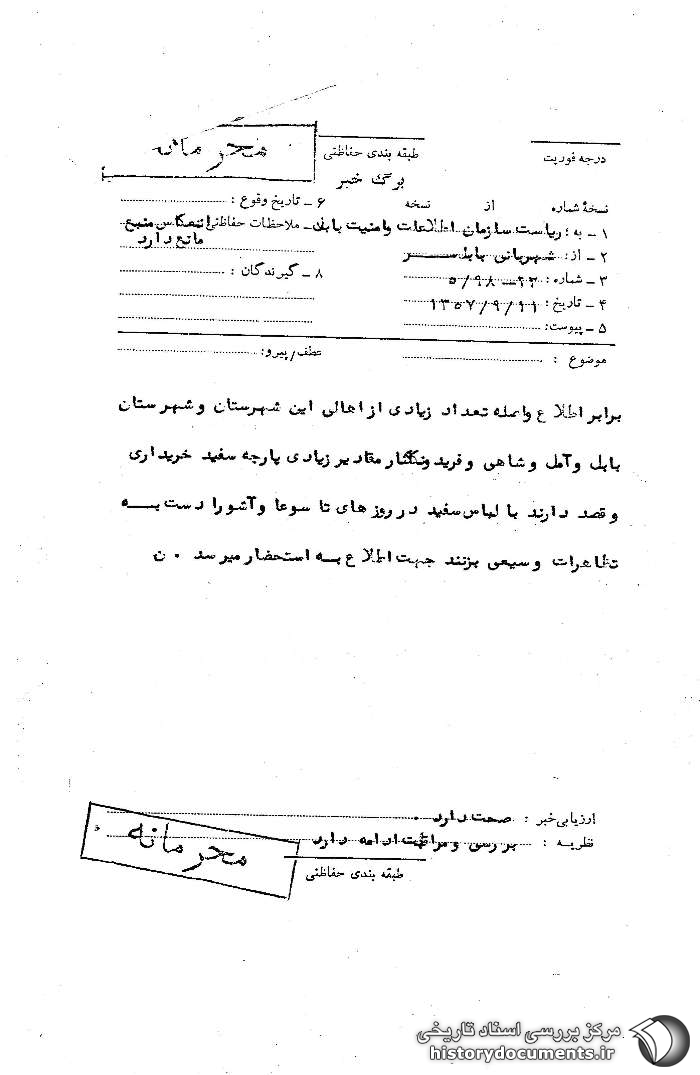 محرمانه
درجه فوریت
طبقه بندی حفاظتی
برگ خبر
نسخهٔ شماره از نسخه
۱ – به: ریاست سازمان اطلاعات وامنیت بابل
۲ – از: شهربانی بابلسر
۳ – شماره:
۴ – تاریخ: ۱۳۵۷/۹/۱۱
۵ – پیوست:
۶ – تاریخ وقوع:
ملاحظات حفاظتی: انعکاس منبع
مانع دارد
۸ – گیرندگان:
موضوع : عطف/پیرو:
برابر اطلاع واصله تعداد زیادی از اهالی این شهرستان وشهرستان
بابل وآمل وشاهی وفریدونکنار مقادیر زیادی پارچه سفید خریداری
وقصد دارند با لباس سفید در روزهای تاسوعا وآشورا دست به
تظاهرات وسیعی بزنند جهت اطلاع به استحضار میرسد . ن
ارزیابی خبر : صحت دارد .
نظریه : بررسی ومراقبت ادامه دارد
طبقه بندی حفاظتی
محرمانه
مرکز بررسی اسناد تاریخی
historydocuments.ir